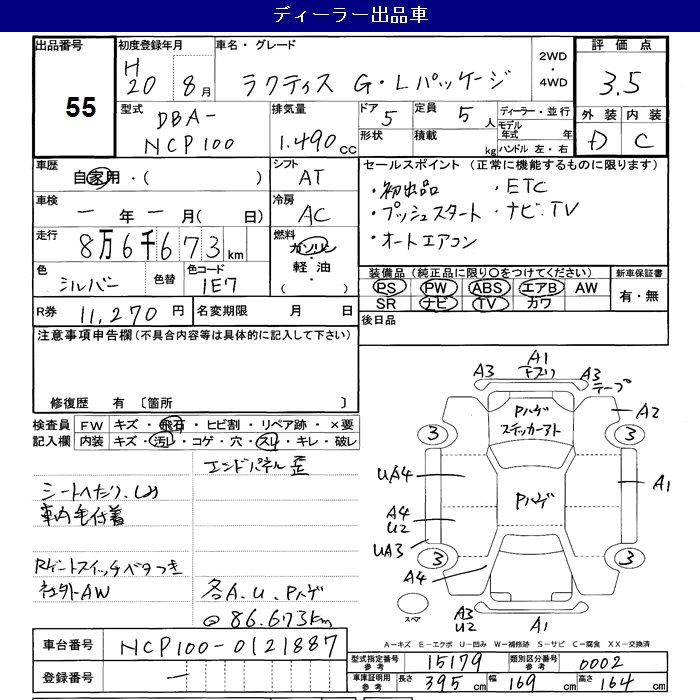 ディーラー出品車
出品番号
55
初度登録年月
H
20 8月
車名・グレード
ラクティス G・Lパッケージ
2WD
・
4WD
評価点
3.5
外装 内装
D C
型式
DBA-
NCP100
排気量
1.490cc
ドア
5
形状
定員
5人
積載
kg
ディーラー・並行
モデル
年式 年
ハンドル 左・右
車歴
自家用・( )
シフト
AT
車検
一年一月(日)
冷房
AC
走行
8万6千673km
燃料
ガソリン
・
軽油
・
( )
色
シルバー
色替
色コード
1E7
セールスポイント(正常に機能するものに限ります)
・初出品 ・ETC
・プッシュスタート ・ナビ.TV
・オートエアコン
装備品(純正品に限り○をつけてください)
PS PW ABS エアB AW
SR ナビ TV カワ
新車保証書
有・無
R券 11,270円
名変期限 月 日
後日品
注意事項申告欄(不具合内容等は具体的に記入して下さい)
修復歴 有 〔箇所 〕
検査員
記入欄
FW キズ・飛石・ヒビ割・リペア跡・×要
内装 キズ・汚レ・コゲ・穴・スレ・キレ・破レ
エンドパネル歪
シートへたり、しみ
車内毛付着
Rゲートスイッチベタつき
社外AW
各A.U.Pハゲ
@86.673km
A3 A1 A3
テープ
Pハゲ
ステッカーアト
A2
3 3
UA4
Pハゲ
A1
A4
U2
UA3
3 3
A4
スペア
A3
U2
A1
A=キズ E=エクボ U=凹み W=補修跡 S=サビ C=腐食 XX=交換済
車台番号 NCP100-0121887
登録番号 ー
型式指定番号
参考
15179
類別区分番号
参考
0002
車庫証明用
参考
長さ 395cm 幅 169cm 高さ 164cm